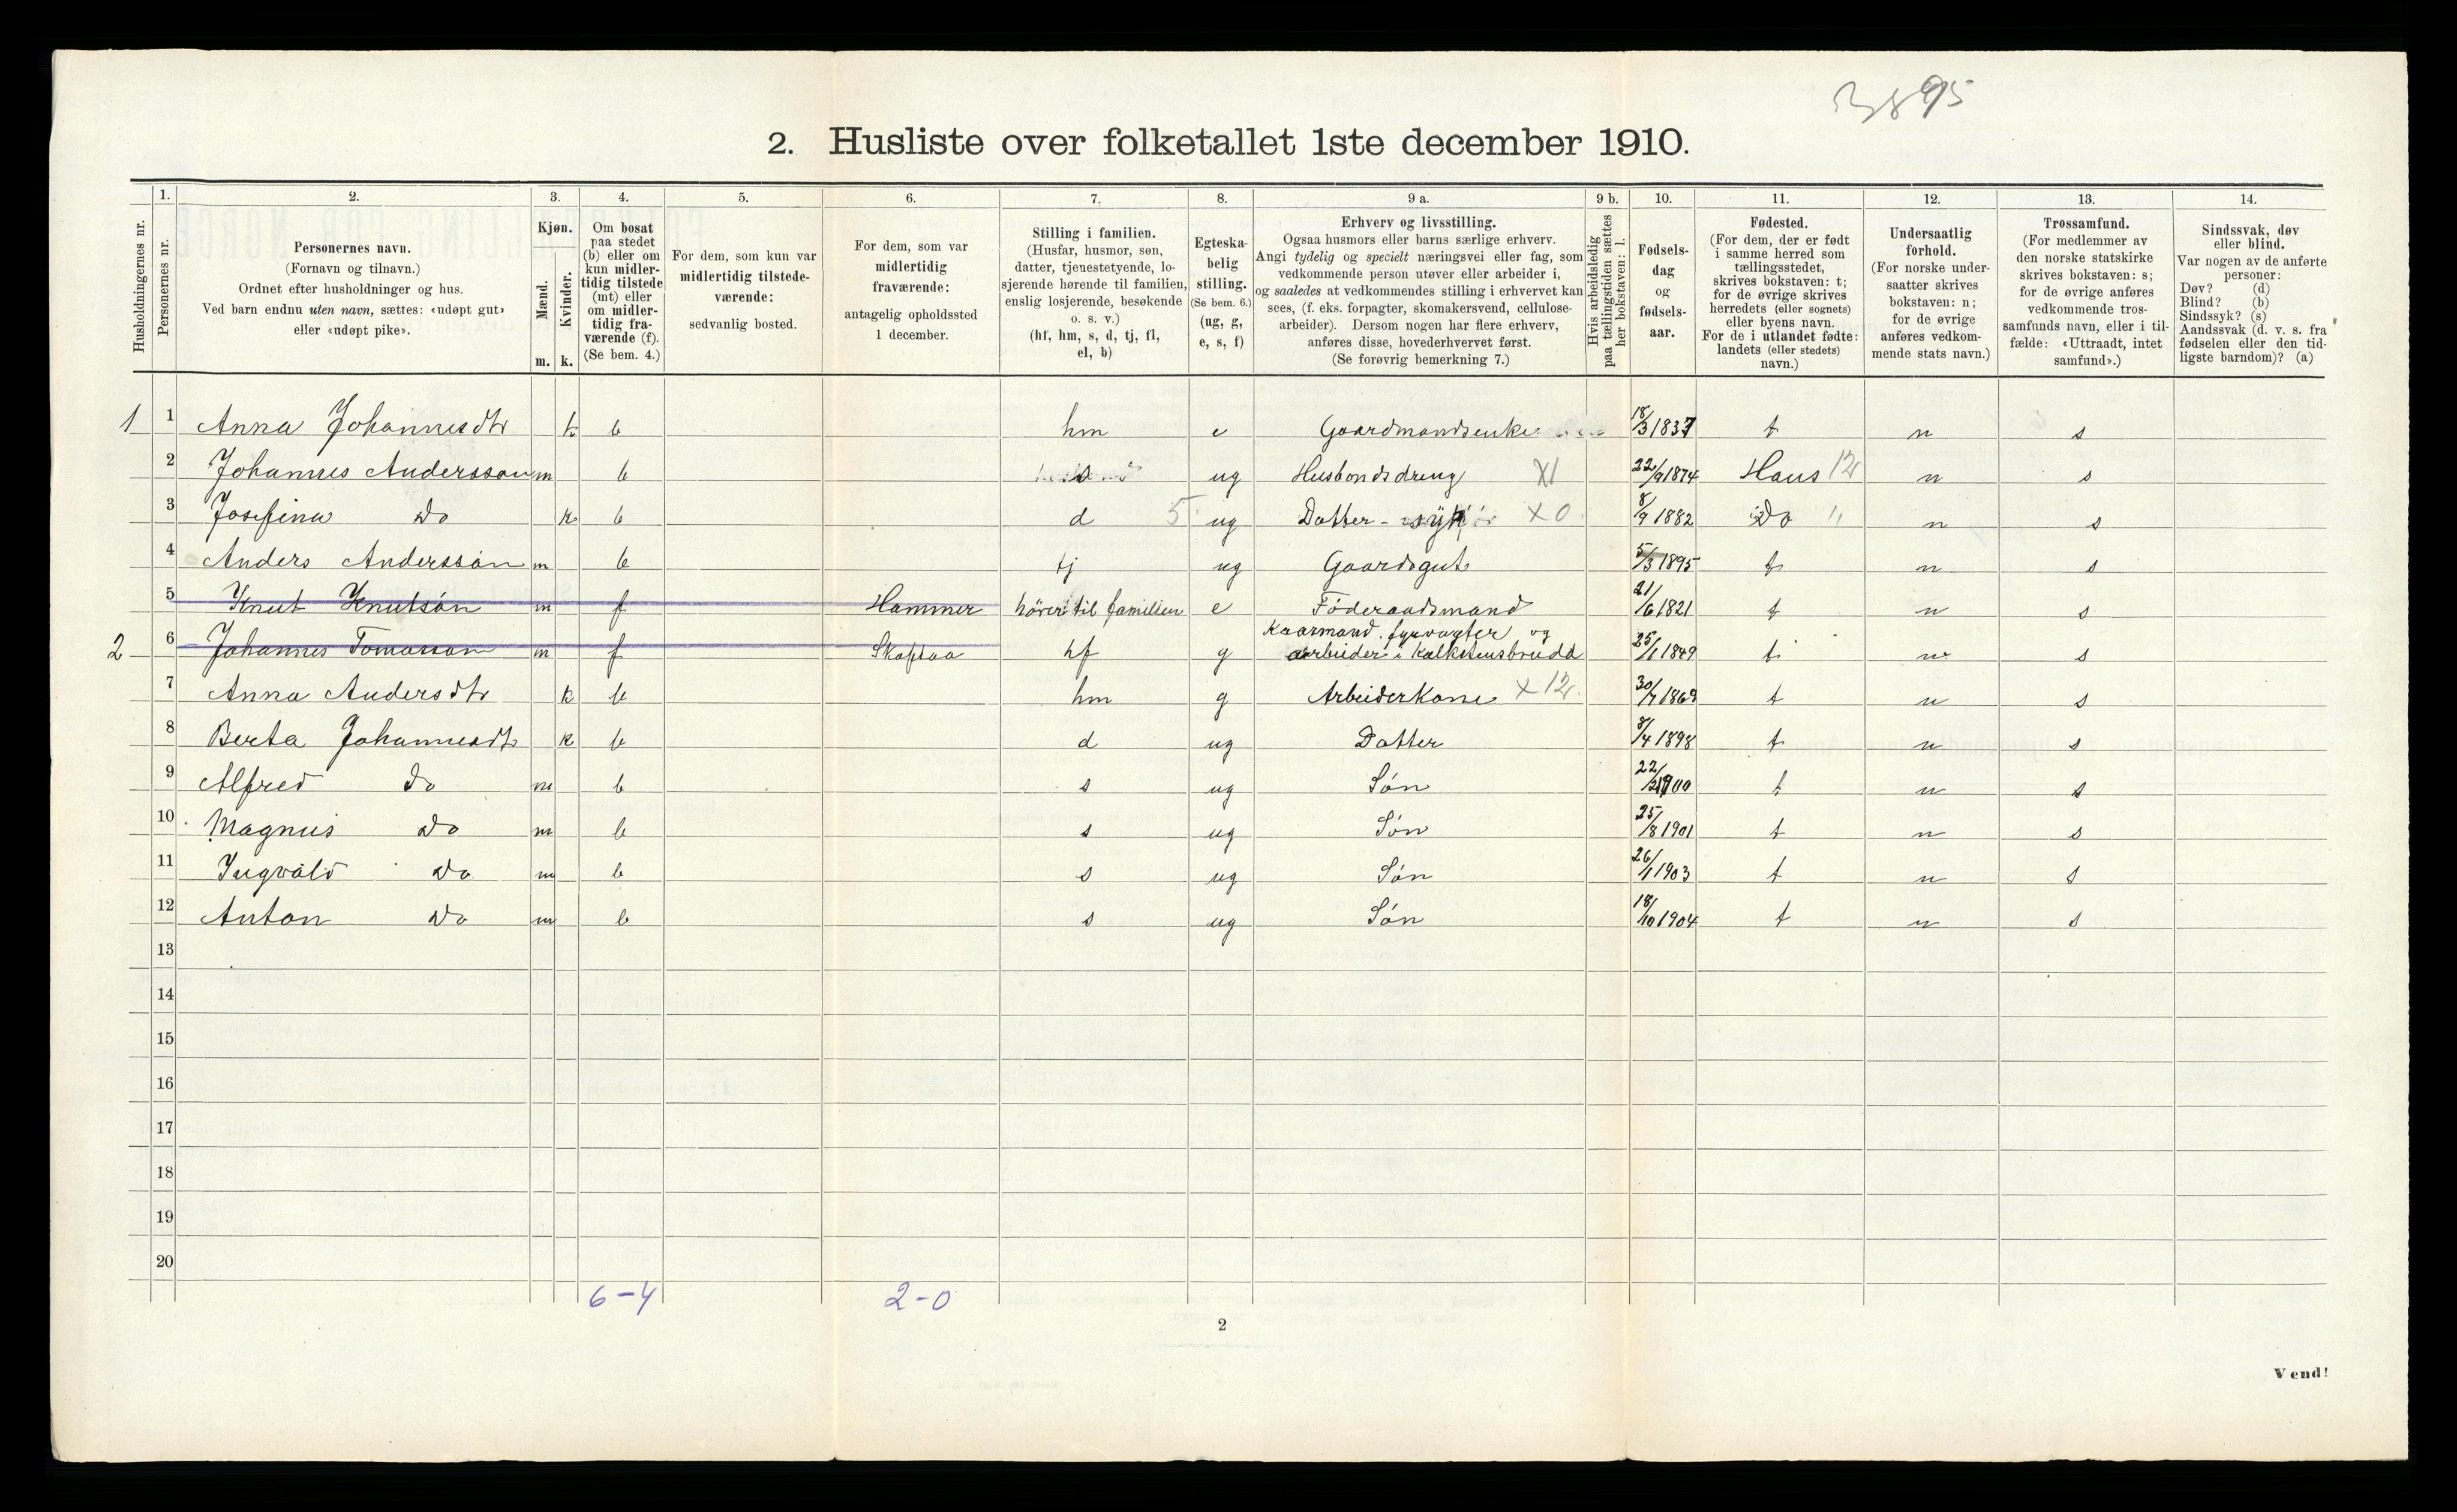 3895
2. Husliste over folketallet 1ste december 1910.
Husholdningernes nr.
1. Personernes nr.
2. Personernes navn.
(Fornavn og tilnavn.)
Ordnet efter husholdninger og hus.
Ved barn endnu uten navn, sættes: «udøpt gut»
eller «udøpt pike».
3. Kjøn.
Mænd. m.
Kvinder. k.
4. Om bosat
paa stedet
(b) eller om
kun midler-
tidig tilstede
(mt) eller
om midler-
tidig fra-
værende (f).
(Se bem. 4.)
5. For dem, som kun var
midlertidig tilstede-
værende:
sedvanlig bosted.
6. For dem, som var
midlertidig
fraværende:
antagelig opholdssted
1 december.
7. Stilling i familien.
(Husfar, husmor, søn,
datter, tjenestetyende, lo-
sjerende hørende til familien,
enslig losjerende, besøkende
o. s. v.)
(hf, hm, s, d, tj, fl,
el, b)
8. Egteska-
belig
stilling.
(Se bem. 6.)
(ug, g,
e, s, f)
9 a. Erhverv og livsstilling.
Ogsaa husmors eller barns særlige erhverv.
Angi tydelig og specielt næringsvei eller fag, som
vedkommende person utøver eller arbeider i,
og saaledes at vedkommendes stilling i erhvervet kan
sees, (f. eks. forpagter, skomakersvend, cellulose-
arbeider). Dersom nogen har flere erhverv,
anføres disse, hovederhvervet først.
(Se forøvrig bemerkning 7.)
9 b. Hvis arbeidsledig
paa tællingstiden sættes
her bokstaven: l.
10. Fødsels-
dag
og
fødsels-
aar.
11. Fødested.
(For dem, der er født
i samme herred som
tællingsstedet,
skrives bokstaven: t;
for de øvrige skrives
herredets (eller sognets)
eller byens navn.
For de i utlandet fødte:
landets (eller stedets)
navn.)
12. Undersaatlig
forhold.
(For norske under-
saatter skrives
bokstaven: n;
for de øvrige
anføres vedkom-
mende stats navn.)
13. Trossamfund.
(For medlemmer av
den norske statskirke
skrives bokstaven: s;
for de øvrige anføres
vedkommende tros-
samfunds navn, eller i til-
fælde: «Uttraadt, intet
samfund».)
14. Sindssvak, døv
eller blind.
Var nogen av de anførte
personer:
Døv? (d)
Blind? (b)
Sindssyk? (s)
Aandssvak (d. v. s. fra
fødselen eller den tid-
ligste barndom)? (a)
1 1 Anna Johannesdtr k b hm e Gaardmandsenke 18/3 1837 t n s
2 Johannes Andersson m b s ug Husbondsdreng X1 22/9 1874 Haus 12 n s
3 Josefina Do k b d 5 ug Datter - X 0 8/9 1882 Do " n s
4 Anders Anderssøn m b tj ug Gaardsgut 5/3 1895 t n s
5 Knut Knutsøn m f Hammer hörer til familien e Föderaadsmand 21/6 1821 t n s
2 6 Johannes Tomasson m f Skaftaa hf g Kaarmand. fyrvogter og
arbeider i Kalkstensbrudd 25/1 1849 t n s
7 Anna Andersdtr k b hm g Arbeiderkone X 12. 30/7 1869 t n s
8 Berta Johannesdtr k b d ug Datter 8/4 1898 t n s
9 Alfred Do m b s ug Søn 22/ 1900 t n s
10 Magnus Do m b s ug Søn 25/8 1901 t n s
11 Ingvald Do m b s ug Søn 26/1 1903 t n s
12 Anton Do m b s ug Søn 18/10 1904 t n s
13
14
15
16
17
18
19
20
6-4 2-0
2
Vend!